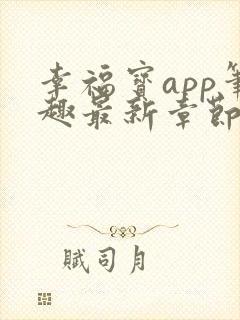 幸福宝app笔
趣最新章节
赋司月